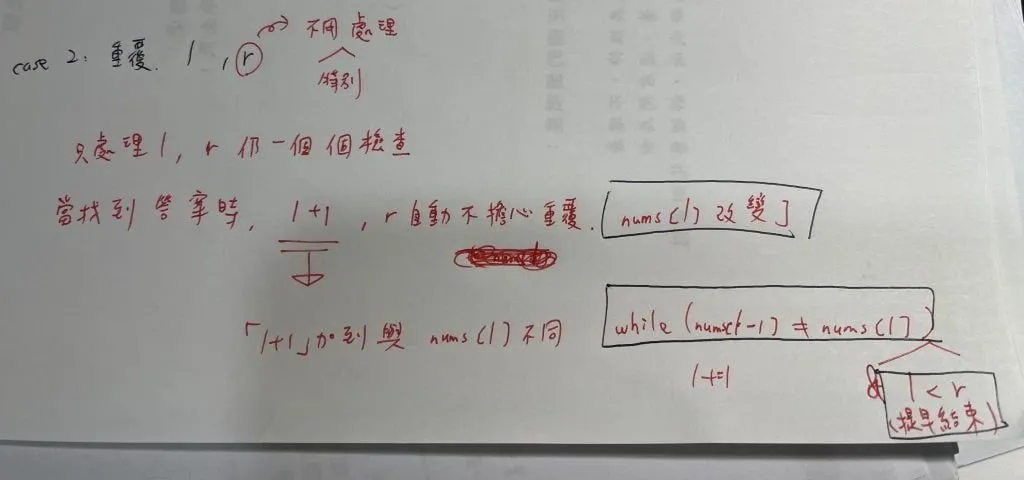 case 2: 重覆. l , r → 不用處理
特別
只處理 l, r 仍一個個檢查
當找到答案時, l+1 , r 自動不擔心重覆. nums[l] 改變]
「l+1」加到與 nums[l] 不同 while (nums[l-1] ≠ nums[l])
l+=1 & l < r
(提早結束)